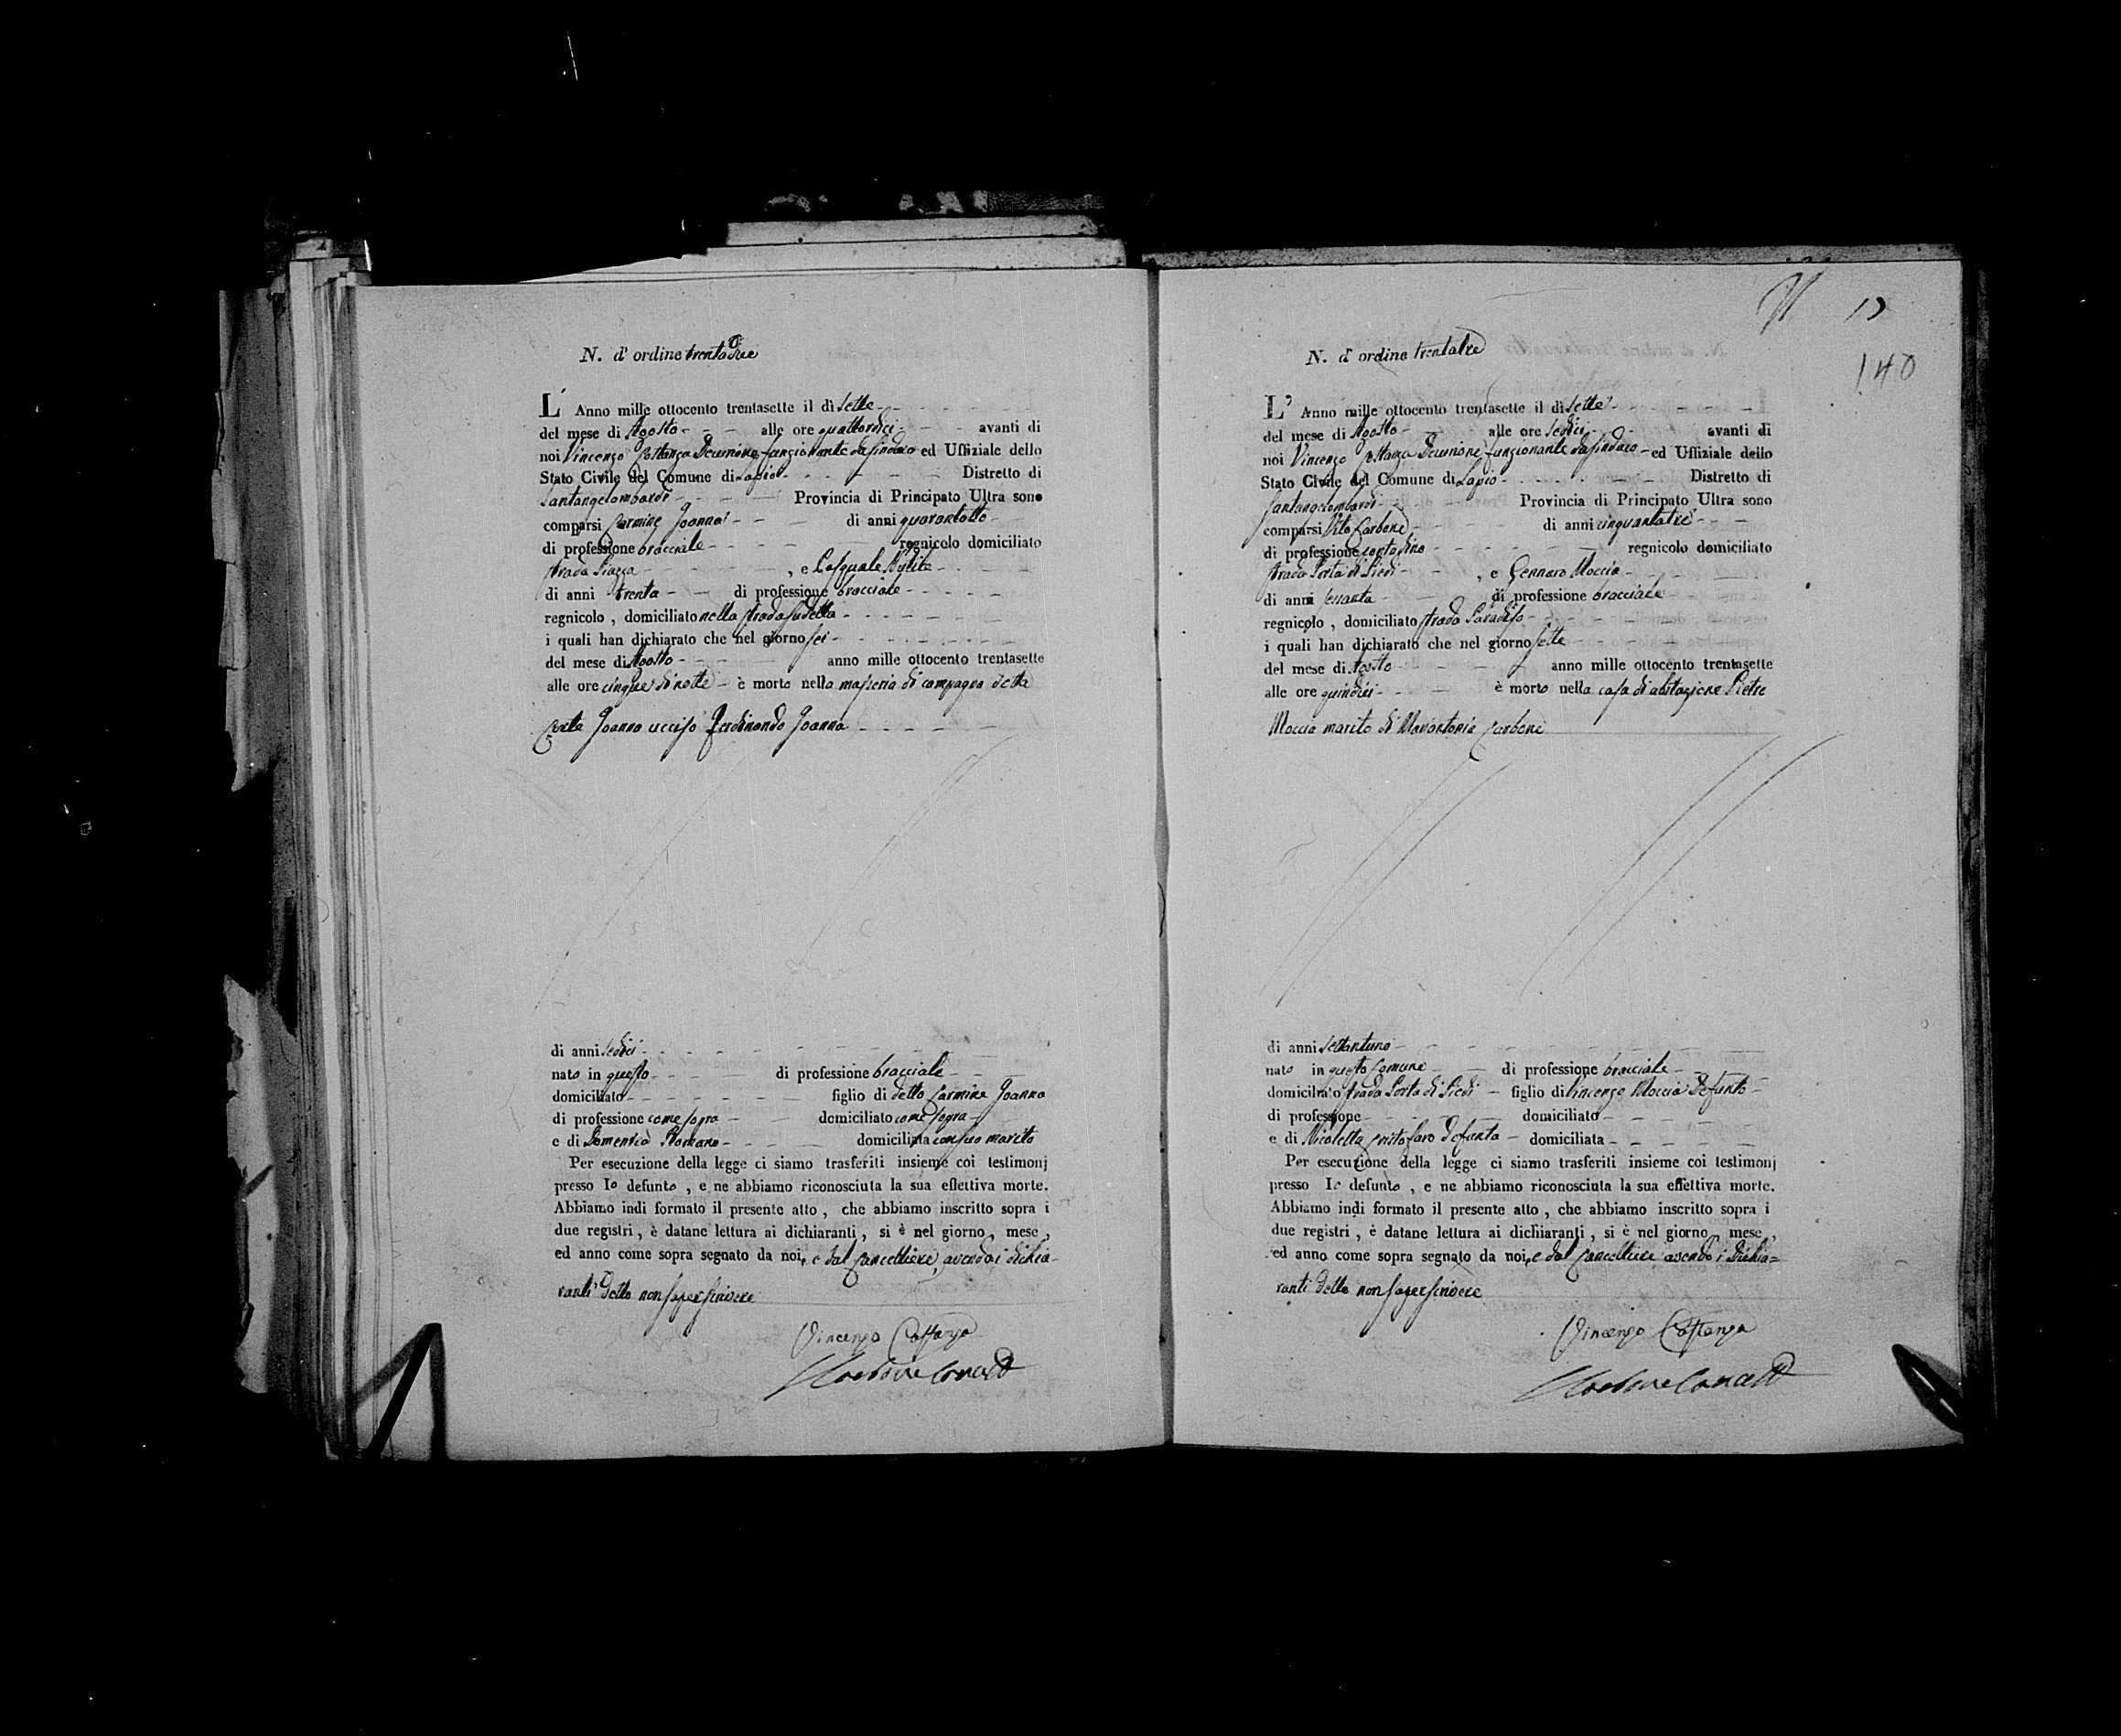 N. d' ordine trentadue
L' Anno mille ottocento trentasette il dì sette
del mese di Agosto alle ore quattordici avanti di
noi Vincenzo Costanza Decurione funzionante da sindaco ed Uffiziale dello
Stato Civile del Comune di Lapio Distretto di
Santangelombardi Provincia di Principato Ultra sono
comparsi Carmine Joanna di anni quarantotto
di professione bracciale regnicolo domiciliato
strada Piazza , e Pasquale
di anni trenta di professione bracciale
regnicolo , domiciliato nella strada sudetta
i quali han dichiarato che nel giorno sei
del mese di Agosto anno mille ottocento trentasette
alle ore cinque di notte è morto nella masseria di campagna detta
Joanna ucciso Ferdinando Joanna
di anni sedici
nato in questo di professione bracciale
domiciliato figlio di detto Carmine Joanna
di professione come sopra domiciliato come sopra
e di Domenica Romano domiciliata con suo marito
Per esecuzione della legge ci siamo trasferiti insieme coi testimonj
presso lo defunto , e ne abbiamo riconosciuta la sua effettiva morte.
Abbiamo indi formato il presente atto , che abbiamo inscritto sopra i
due registri , è datane lettura ai dichiaranti , si è nel giorno , mese ,
ed anno come sopra segnato da noi, e dal Cancelliere, avendo i dichia-
ranti detto non saper scrivere
Vincenzo Costanza
N. d' ordine trentatre
L' Anno mille ottocento trentasette il dì sette
del mese di Agosto alle ore sedici avanti di
noi Vincenzo Costanza Decurione funzionante da sindaco ed Uffiziale dello
Stato Civile del Comune di Lapio Distretto di
Santangelombardi Provincia di Principato Ultra sono
comparsi Vito Carbone di anni cinquantatre
di professione contadino regnicolo domiciliato
strada Porta di Piedi , e Gennaro Moccia
di anni sessanta di professione bracciale
regnicolo , domiciliato strada Paradiso
i quali han dichiarato che nel giorno sette
del mese di Agosto anno mille ottocento trentasette
alle ore quindici è morto nella casa di abitazione Pietro
Moccia marito di Mariantonia Carbone
di anni settantuno
nato in questo Comune di professione bracciale
domiciliato strada Porta di Piedi figlio di Vincenzo Moccia defunto
di professione domiciliato
e di Nicoletta Cristofaro defunta domiciliata
Per esecuzione della legge ci siamo trasferiti insieme coi testimonj
presso lo defunto , e ne abbiamo riconosciuta la sua effettiva morte.
Abbiamo indi formato il presente atto , che abbiamo inscritto sopra i
due registri , è datane lettura ai dichiaranti , si è nel giorno , mese ,
ed anno come sopra segnato da noi, e dal Cancelliere avendo i dichia=
ranti detto non saper scrivere
Vincenzo Costanza
140